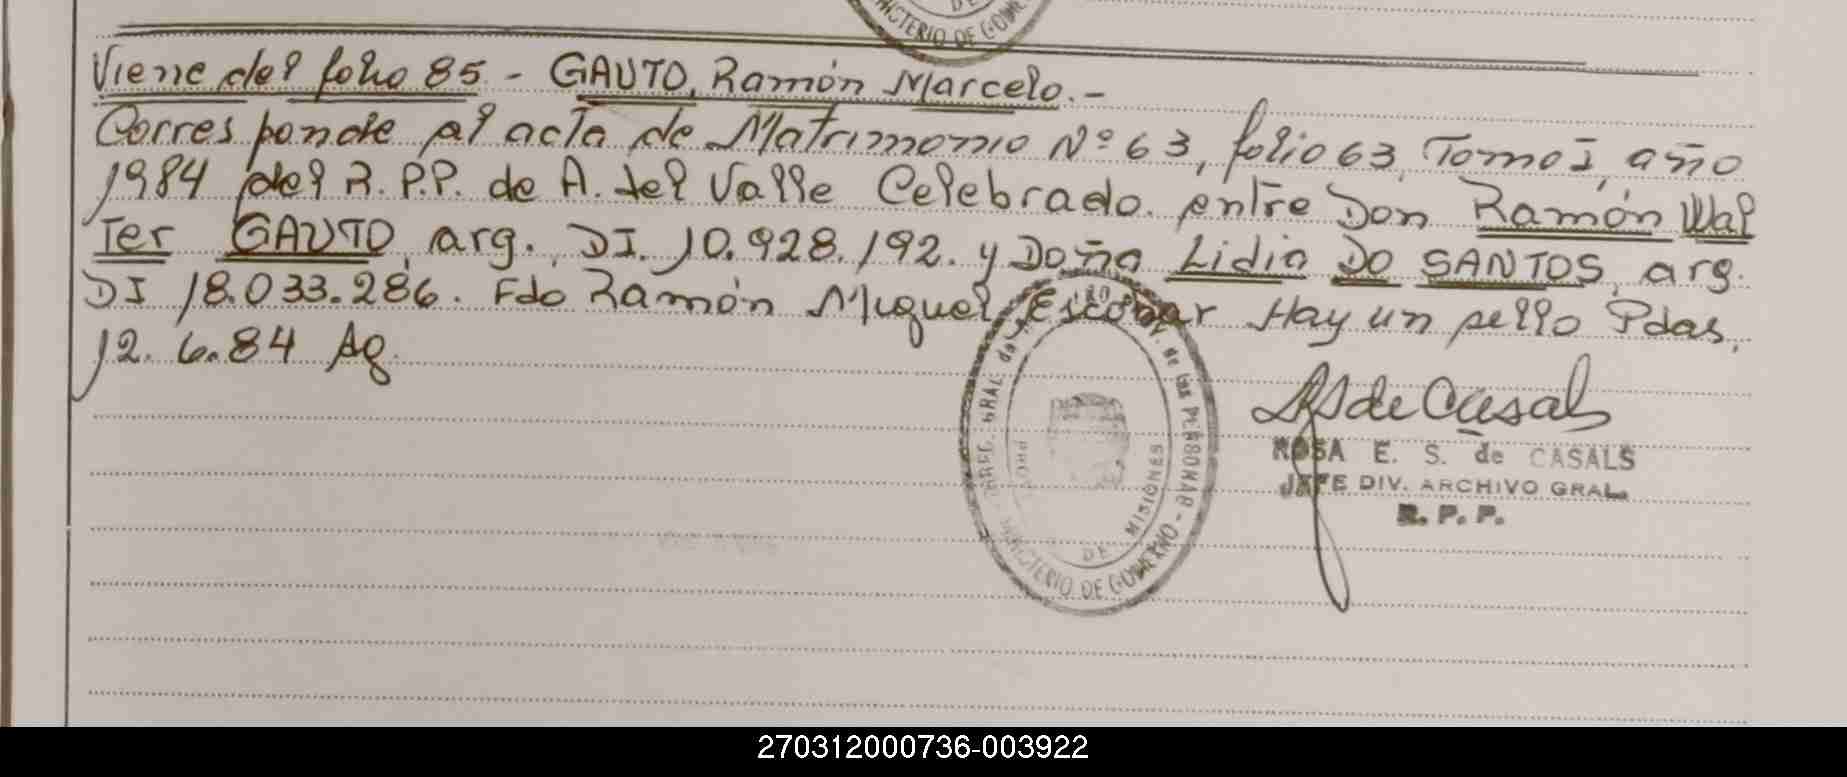 Viene del folio 85.- GAUTO, Ramón Marcelo.-
Corresponde al acta de Matrimonio Nº 63, folio 63, Tomo I, año
1984 del R.P.P. de A. del Valle Celebrado entre Don Ramón Wal
ter GAUTO, arg. DI. 10.928.192. y Doña Lidia DO SANTOS, arg.
DI 18.033.286. Fdo Ramón Miguel Escobar Hay un sello Pdas,
12.6.84 Ag.
MINISTERIO DE GOBIERNO
DE
DIREC. GRAL. de las PERSONAS - MINISTERIO DE GOBIERNO
DE MISIONES
ROSA E. S. de CASALS
JEFE DIV. ARCHIVO GRAL.
R. P. P.
270312000736-003922